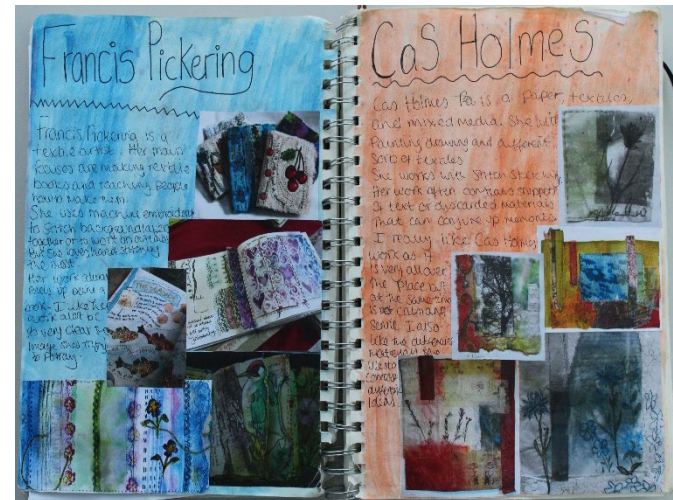 Francis Pickering
Francis Pickering is a
textile artist. Her main
focuses are making textile
books and teaching people
how to make them.
She uses machine embroidery
to stitch backgrounds
together or to work on outlines
But she uses hand stitching
the most.
Her work
work. I like her
work a lot
very clear
image she's trying
to portray.
Cas Holmes
Cas Holmes is a Paper, textiles,
and mixed media. She
Painting drawing and different
Sorts of textiles
She works with Stitch Sketching
Her work often contains snippets
of text or discarded materials
That can conjure up memories
I really like Cas Holmes
work as it
is very all over
the place but
at the same time
is calming
I also
like the different
materials she
uses to
different
Ideas